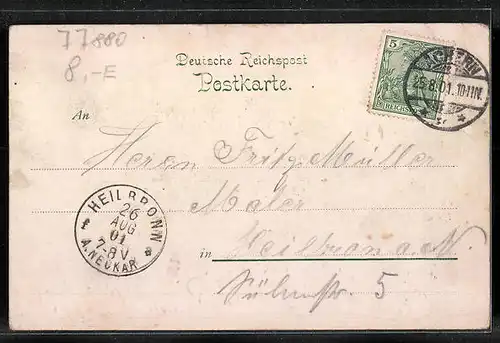 77880
8,-E
Deutsche Reichspost
Postkarte.
5
REICHSPOST
25.8.01. 10-11N.
An
Herrn Fritz Müller
Maler
in Heilbron a. N.
5
HEILBRONN
26
AUG
01
7-8V
A.NECKAR